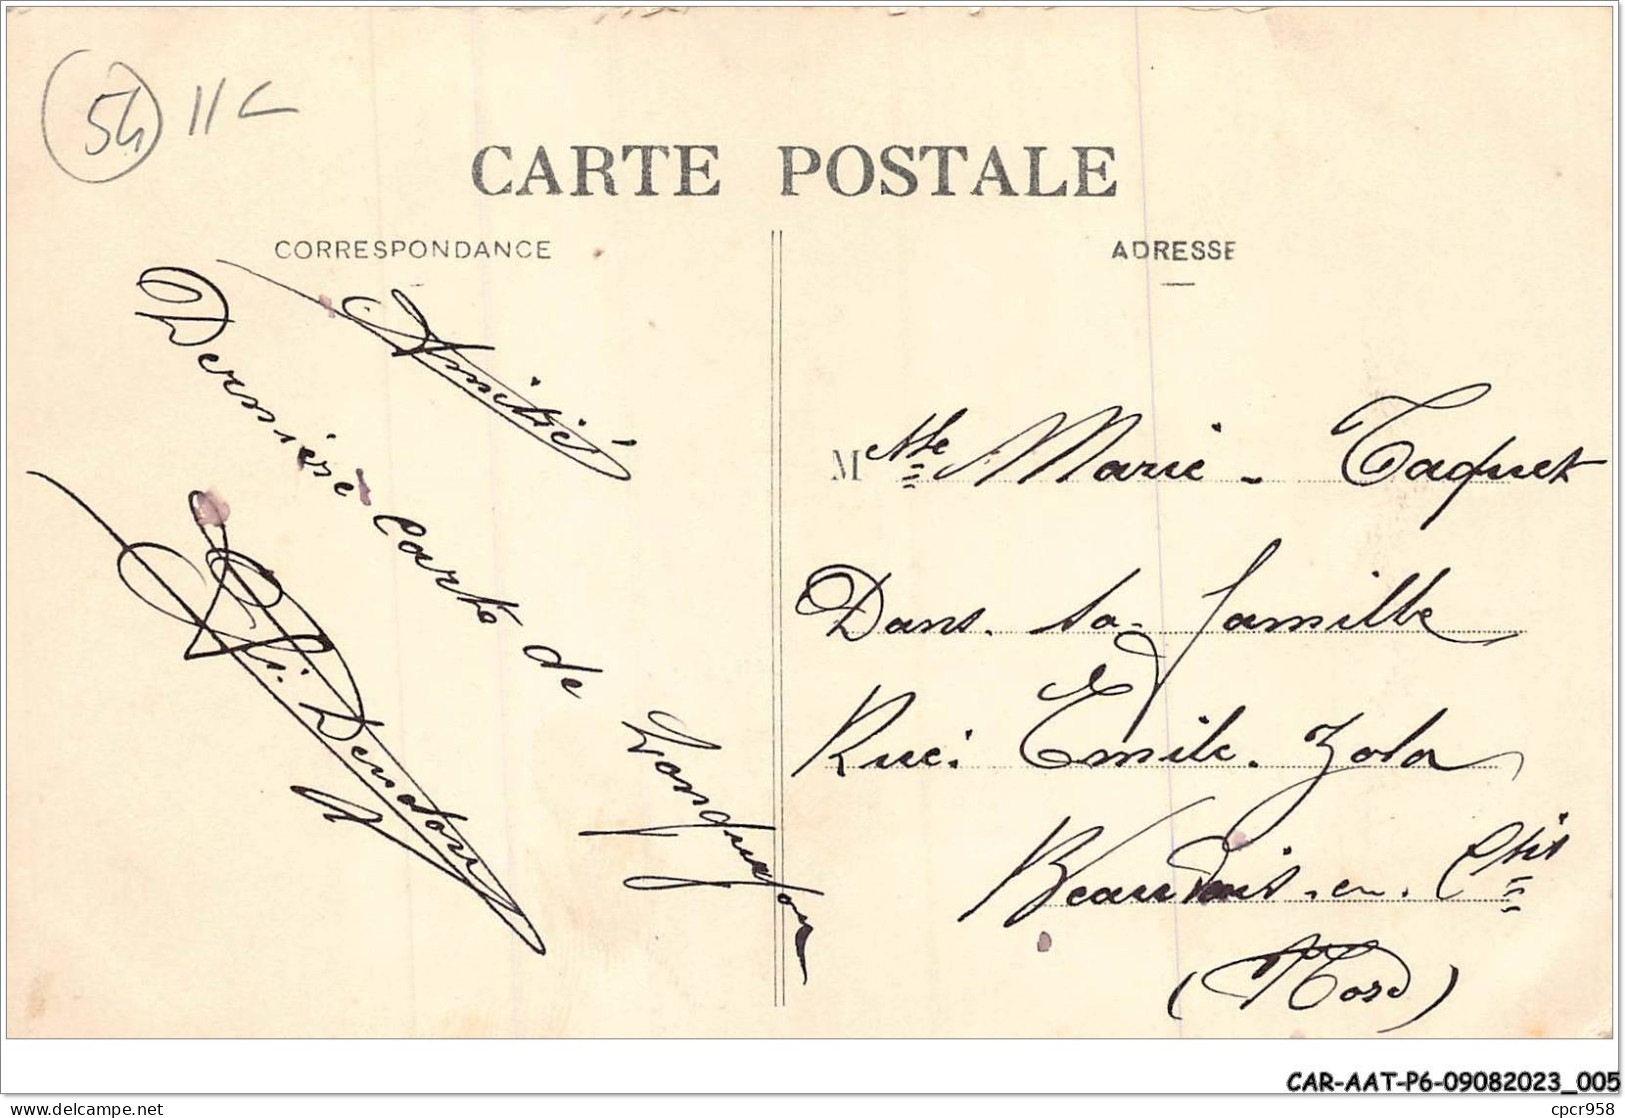 54 11C
CARTE POSTALE
CORRESPONDANCE
ADRESSE
Amitié
Dernière carte de
M elle Marie - Taquet
Dans. sa. famille
Rue: Emile. Zola
Beauvois. en. Csis
(Nord)
CAR-AAT-P6-09082023_005
delcampe.net
cpcr958